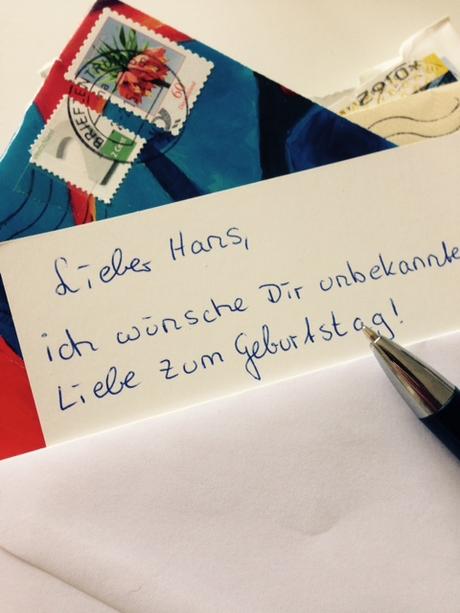 BRIEFZENTRUM
60
Lieber Hans,
ich wünsche Dir unbekannte
Liebe zum Geburtstag!